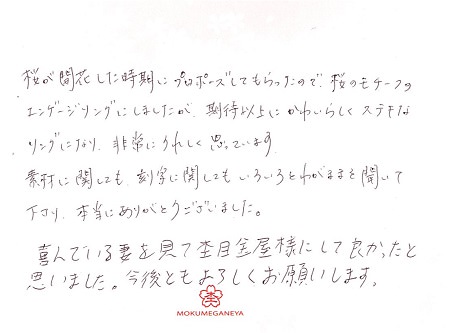 桜が開花した時期にプロポーズしてもらったので、桜のモチーフの
エンゲージリングにしましたが、期待以上にかわいらしくステキな
リングになり、非常にうれしく思っています。
素材に関しても、刻字に関してもいろいろとわがままを聞いて
下さり、本当にありがとうございました。
喜んでいる妻を見て杢目金屋様にして良かったと
思いました。今後ともよろしくお願いします。
MOKUMEGANEYA